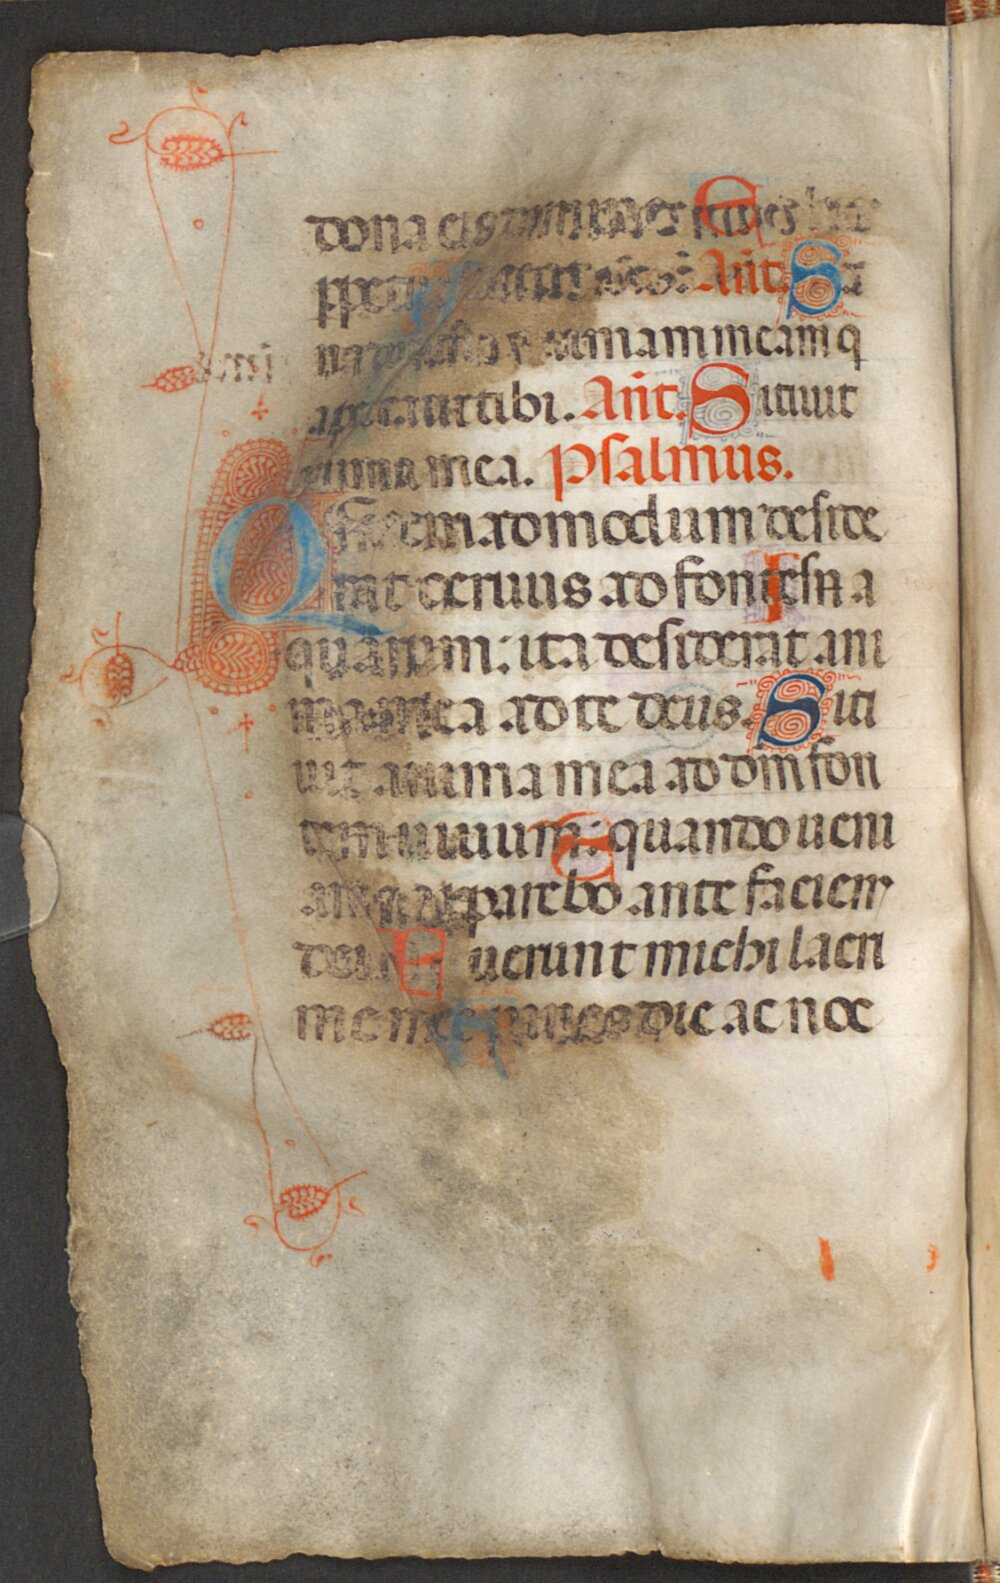 dona eis domine et lux
ppetua luceat eis. Añt. Sa
na dñe animam meam q
peccaui tibi. Añt. Sitiuit
anima mea. Psalmus.
Quemadmodum deside
rat ceruus ad fontes a
quarum: ita desiderat ani
ma mea ad te deus. Siti
uit anima mea ad dm̄ fon
tem uiuum: quando ueni
am et apparebo ante faciem
dei. Fuerunt michi lacri
me mee panes die ac noc